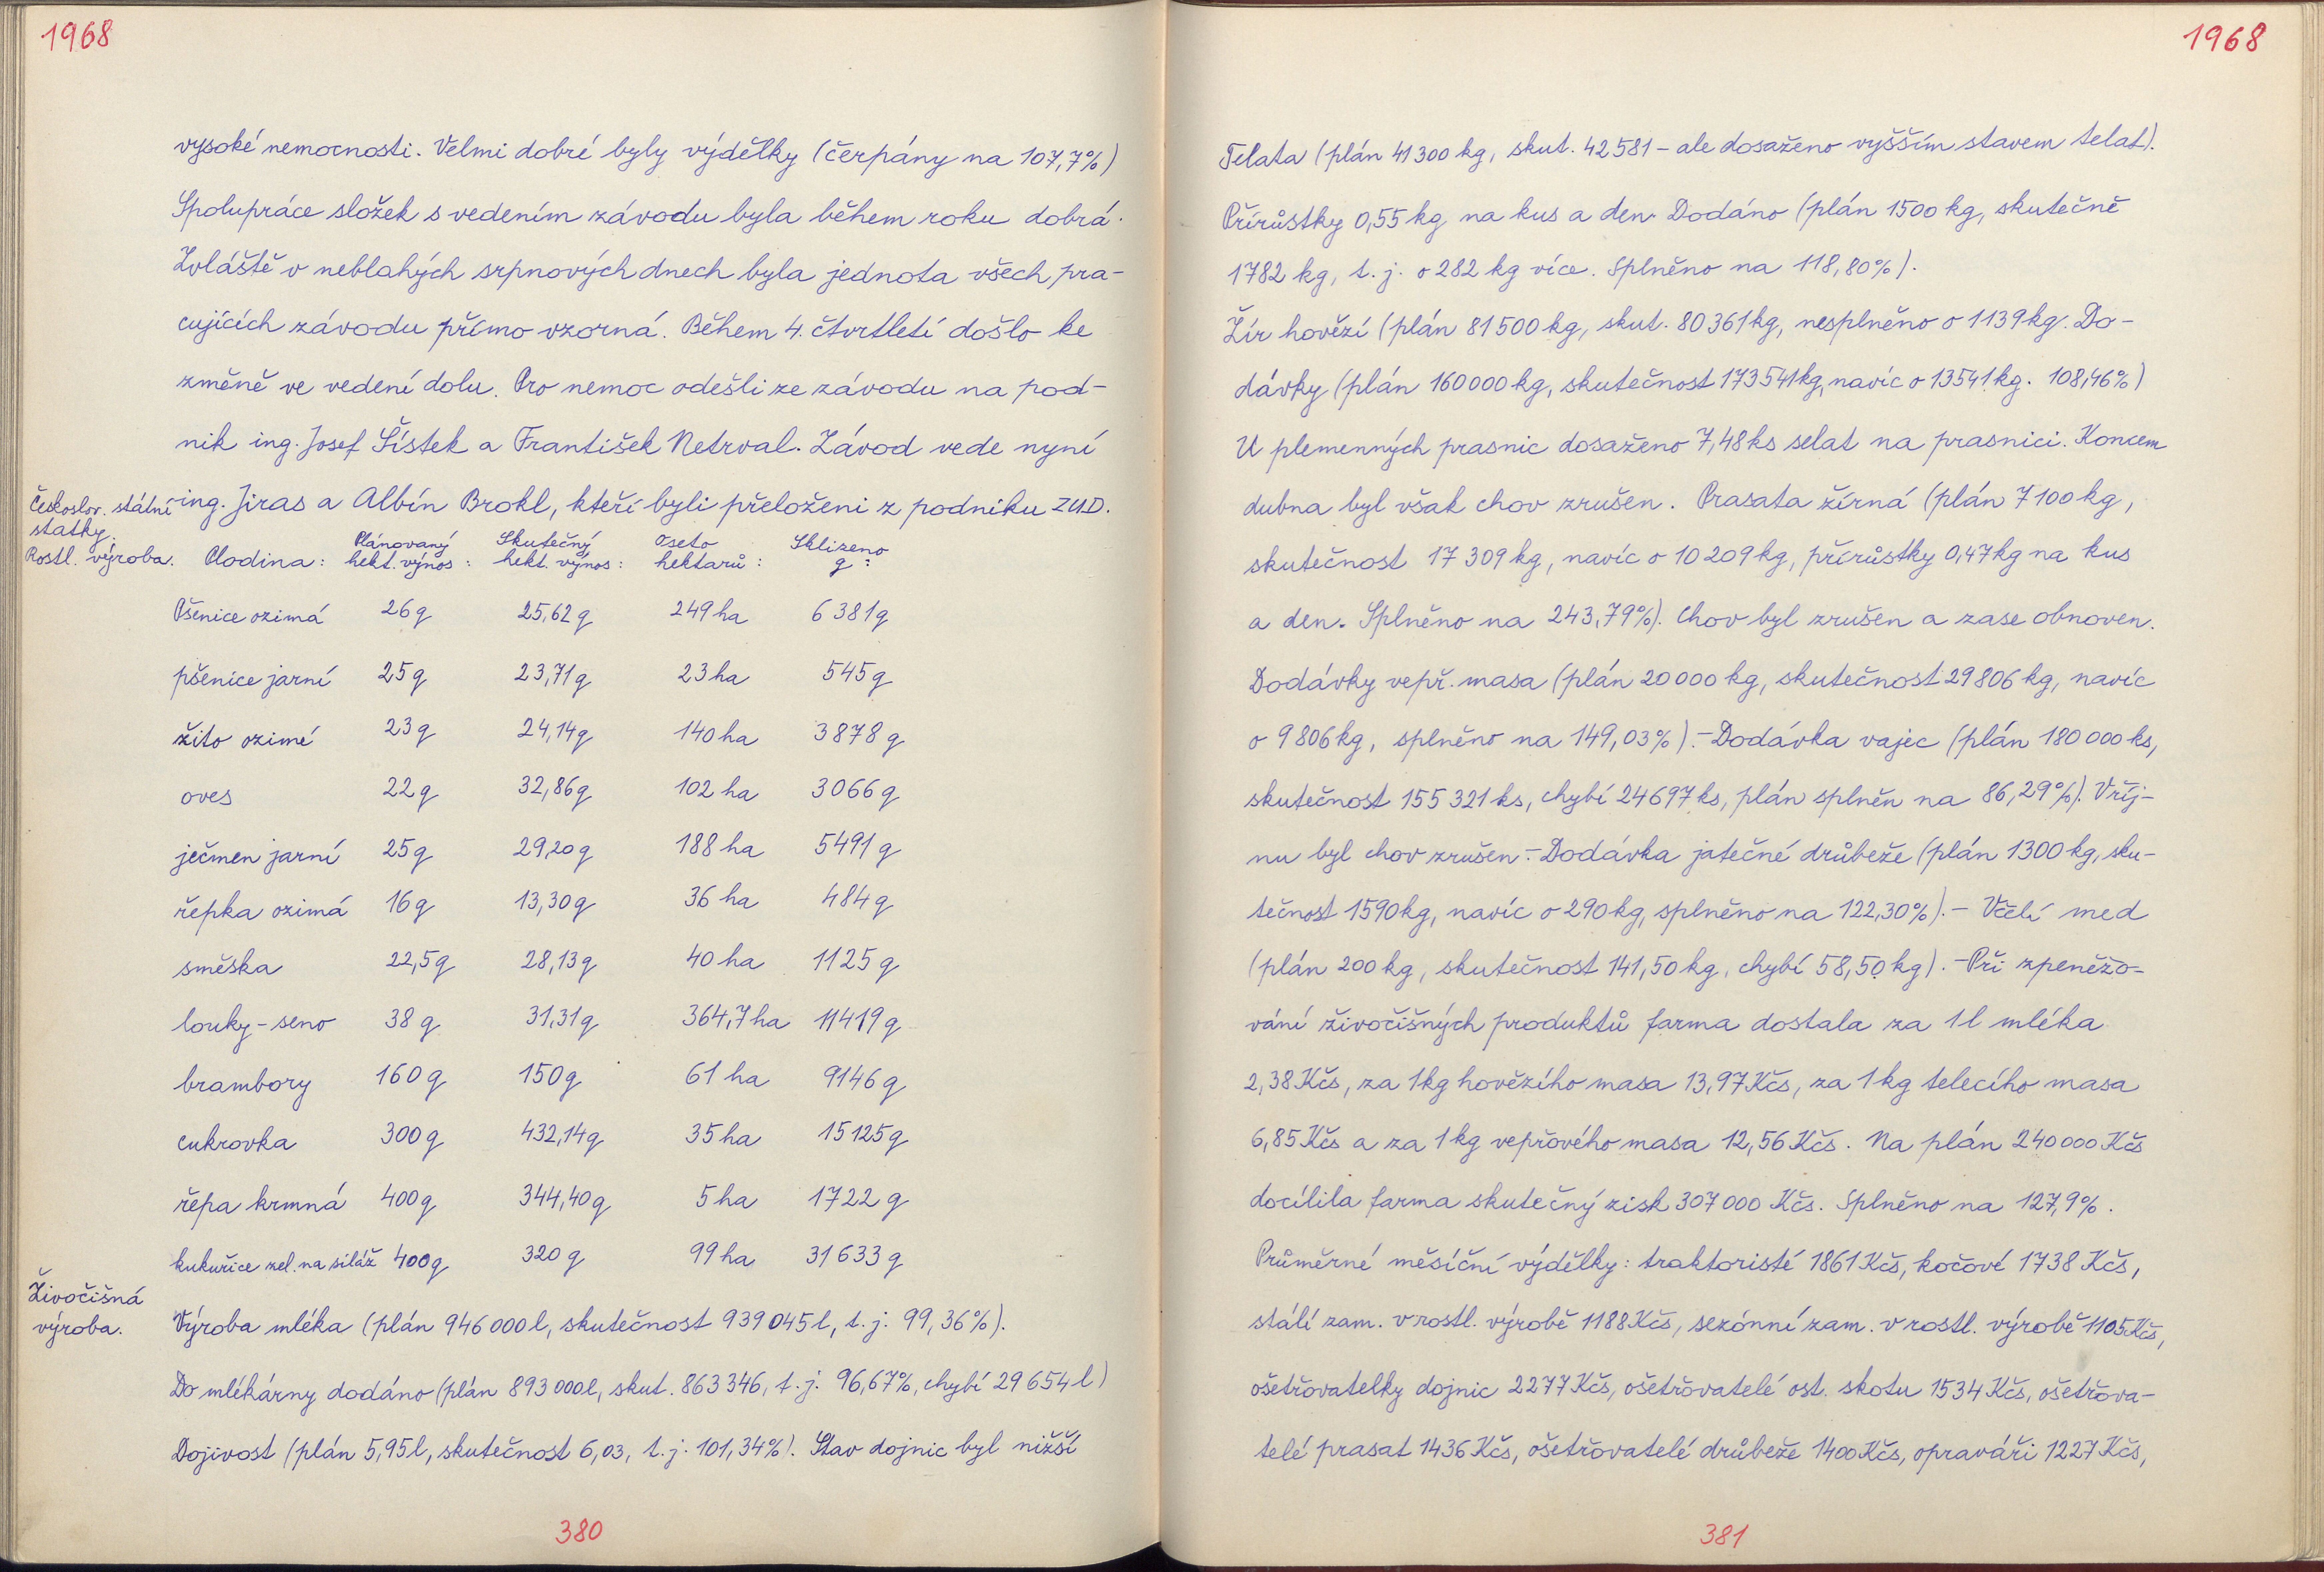 1968
vysoké nemocnosti. Velmi dobré byly výdělky (čerpány na 107,7%)
Spolupráce složek s vedením závodu byla během roku dobrá.
Zvláště v neblahých srpnových dnech byla jednota všech pra-
cujících závodu přímo vzorná. Během 4. čtvrtletí došlo ke
změně ve vedení dolu. Pro nemoc odešli ze závodu na pod-
nik ing. Josef Šístek a František Netrval. Závod vede nyní
ing. Jiras a Albín Brokl, kteří byli přeloženi z podniku ZUD.
Českoslov. státní
statky.
Rostl. výroba.
Plodina: Plánovaný hekt. výnos: Skutečný hekt. výnos: Oseto hektarů: Sklizeno q:
Pšenice ozimá 26 q 25,62 q 249 ha 6 381 q
pšenice jarní 25 q 23,71 q 23 ha 545 q
žito ozimé 23 q 24,14 q 140 ha 3878 q
oves 22 q 32,86 q 102 ha 3066 q
ječmen jarní 25 q 29,20 q 188 ha 5491 q
řepka ozimá 16 q 13,30 q 36 ha 484 q
směska 22,5 q 28,13 q 40 ha 1125 q
louky - seno 38 q 31,31 q 364,7 ha 11419 q
brambory 160 q 150 q 61 ha 9146 q
cukrovka 300 q 432,14 q 35 ha 15125 q
řepa krmná 400 q 344,40 q 5 ha 1722 q
kukuřice zel. na siláž 400 q 320 q 99 ha 31 633 q
Živočišná
výroba.
Výroba mléka (plán 946 000 l, skutečnost 939 045 l, t. j. 99,36%).
Do mlékárny dodáno (plán 893 000 l, skut. 863 346, t. j. 96,67%, chybí 29 654 l)
Dojivost (plán 5,95 l, skutečnost 6,03, t. j. 101,34%). Stav dojnic byl nižší
380
1968
Telata (plán 41 300 kg, skut. 42 581 - ale dosaženo vyšším stavem telat).
Přírůstky 0,55 kg na kus a den. Dodáno (plán 1500 kg, skutečně
1782 kg, t. j. o 282 kg více. Splněno na 118,80%).
Žír hovězí (plán 81 500 kg, skut. 80 361 kg, nesplněno o 1139 kg. Do-
dávky (plán 160 000 kg, skutečnost 173 541 kg, navíc o 13541 kg. 108,46%)
U plemenných prasnic dosaženo 7,48 ks selat na prasnici. Koncem
dubna byl však chov zrušen. Prasata žírná (plán 7 100 kg,
skutečnost 17 309 kg, navíc o 10 209 kg, přírůstky 0,47 kg na kus
a den. Splněno na 243,79%). Chov byl zrušen a zase obnoven.
Dodávky vepř. masa (plán 20 000 kg, skutečnost 29 806 kg, navíc
o 9 806 kg, splněno na 149,03%).- Dodávka vajec (plán 180 000 ks,
skutečnost 155 321 ks, chybí 24 697 ks, plán splněn na 86,29%). V říj-
nu byl chov zrušen.- Dodávka jatečné drůbeže (plán 1300 kg, sku-
tečnost 1590 kg, navíc o 290 kg, splněno na 122,30%).- Včelí med
(plán 200 kg, skutečnost 141,50 kg, chybí 58,50 kg).- Při zpeněžo-
vání živočišných produktů farma dostala za 1 l mléka
2,38 Kčs, za 1 kg hovězího masa 13,97 Kčs, za 1 kg telecího masa
6,85 Kčs a za 1 kg vepřového masa 12,56 Kčs. Na plán 240 000 Kčs
docílila farma skutečný zisk 307 000 Kčs. Splněno na 127,9%.
Průměrné měsíční výdělky: traktoristé 1861 Kčs, kočové 1738 Kčs,
stálí zam. v rostl. výrobě 1188 Kčs, sezónní zam. v rostl. výrobě 1105 Kčs,
ošetřovatelky dojnic 2277 Kčs, ošetřovatelé ost. skotu 1534 Kčs, ošetřova-
telé prasat 1436 Kčs, ošetřovatelé drůbeže 1400 Kčs, opraváři 1227 Kčs,
381